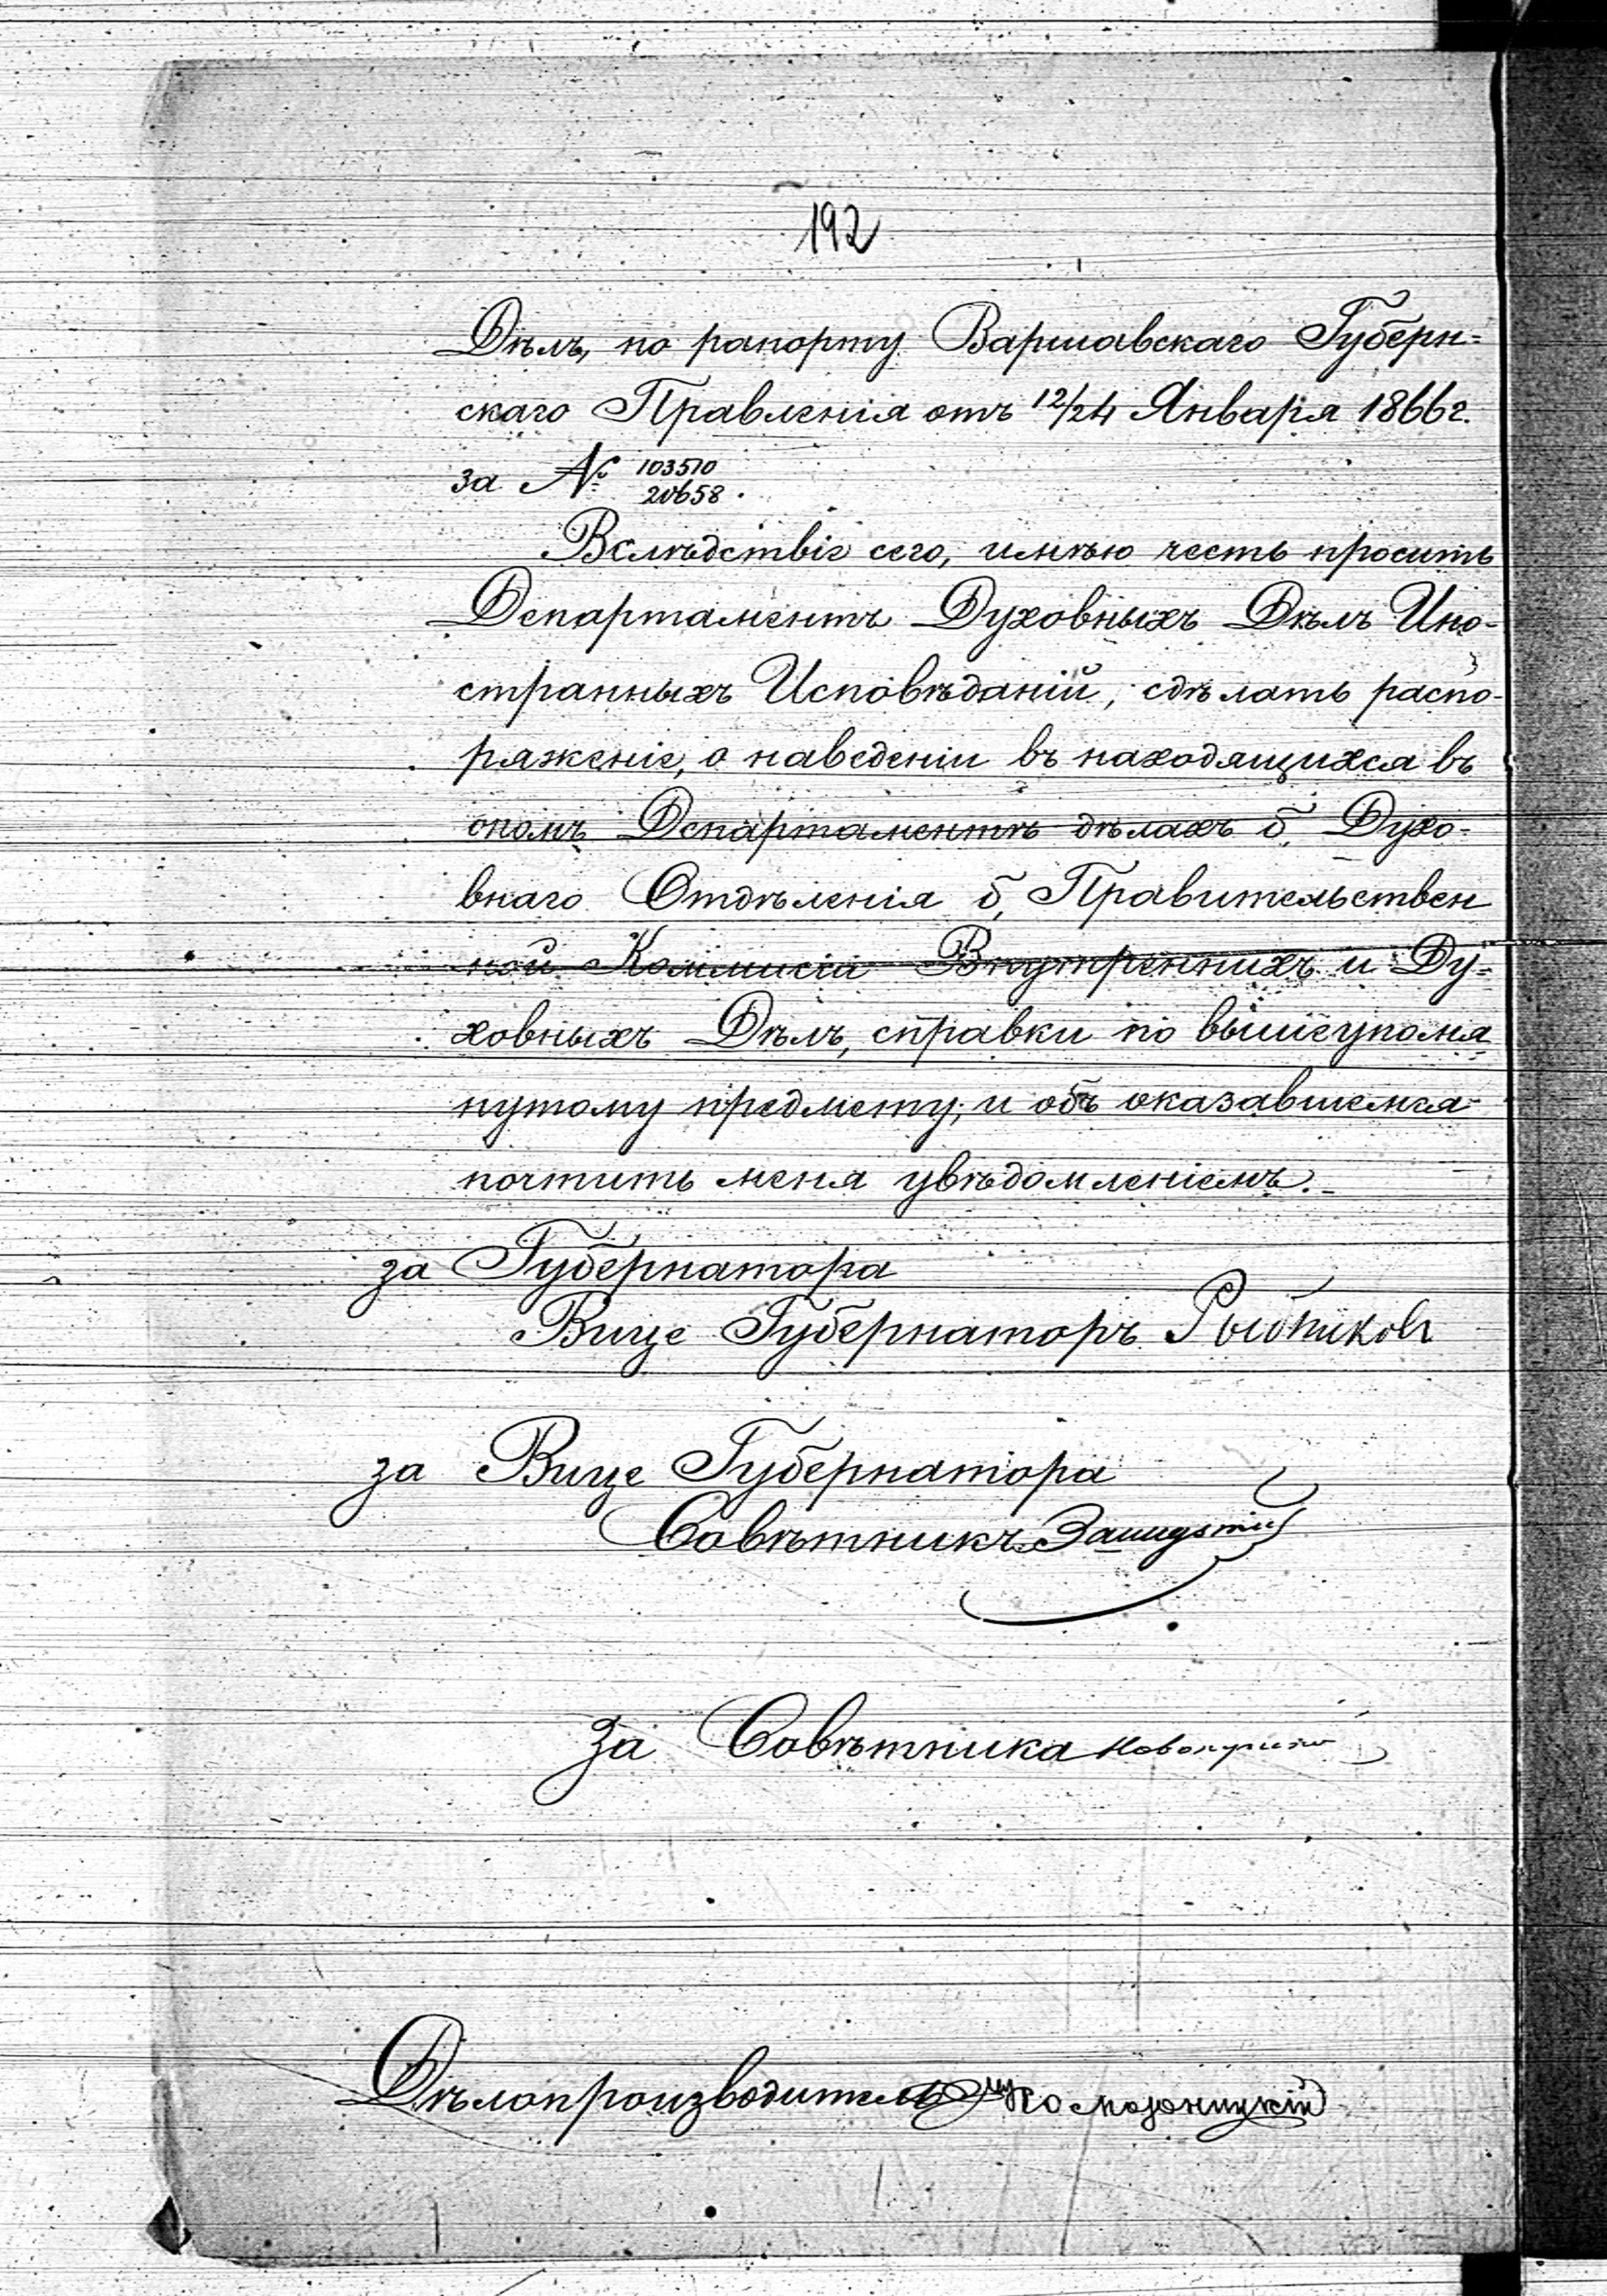 192
Дѣлъ, по рапорту Варшавскаго Губерн=
скаго Правленія отъ 12/24 Января 1866 г.
за № 103510
20658.
Вслѣдствіе сего, имѣю честь просить
Департаментъ Духовныхъ Дѣлъ Ино-
странныхъ Исповѣданій, сдѣлать распо-
ряженіе, о наведеніи въ находящихся въ
ономъ Департаментѣ дѣлахъ б. Духо-
внаго Отдѣленія б. Правительствен
ной Коммисіи Внутреннихъ и Ду=
ховныхъ Дѣлъ, справки по вышеупомя
нутому предмету, и объ оказавшемся
почтить меня увѣдомленіемъ.
за Губернатора
Вице Губернаторъ Рыбников
за Вице Губернатора
Совѣтникъ
за Совѣтника
Дѣлопроизводитель